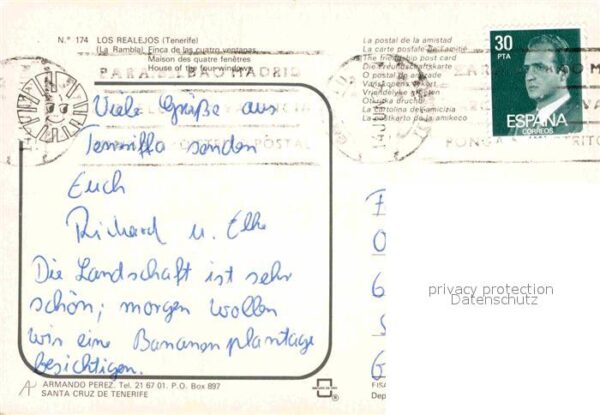 N.º 174 LOS REALEJOS (Tenerife)
(La Rambla) Finca de las cuatro ventanas
Maison des quatre fenêtres
House of the four windows
La postal de la amistad
La carte postale de l'amitié
The friendship post card
Die Freundschaftskarte
O postal da amizade
Vriendelijke groeten
La cartolina dell'amicizia
La poŝtkarto de la amikeco
30
PTA
ESPAÑA
CORREOS
MADRID
POSTAL
PONGA
DISTRITO
Viele Grüße aus
Teneriffa senden
Euch
Richard u. Elke
Die Landschaft ist sehr
schön; morgen wollen
wir eine Bananenplantage
besichtigen.
privacy protection
Datenschutz
ARMANDO PEREZ. Tel. 21 67 01. P.O. Box 897
SANTA CRUZ DE TENERIFE
FISA
Dep